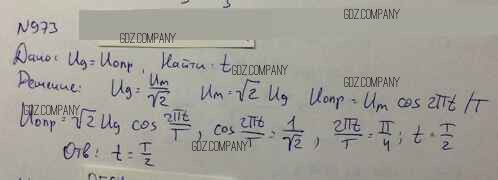 N973
GDZ.COMPANY
GDZ.COMPANY
Дано: Uд = Uопр, Найти: t
GDZ.COMPANY
Решение: Uд = Um/√2 Um = √2 Uд Uопр = Um cos 2πt/T
GDZ.COMPANY
GDZ.COMPANY
Uопр = √2 Uд cos 2πt/T, cos 2πt/T = 1/√2, 2πt/T = π/4; t = T/2
GDZ.COMPANY
Отв: t = T/2